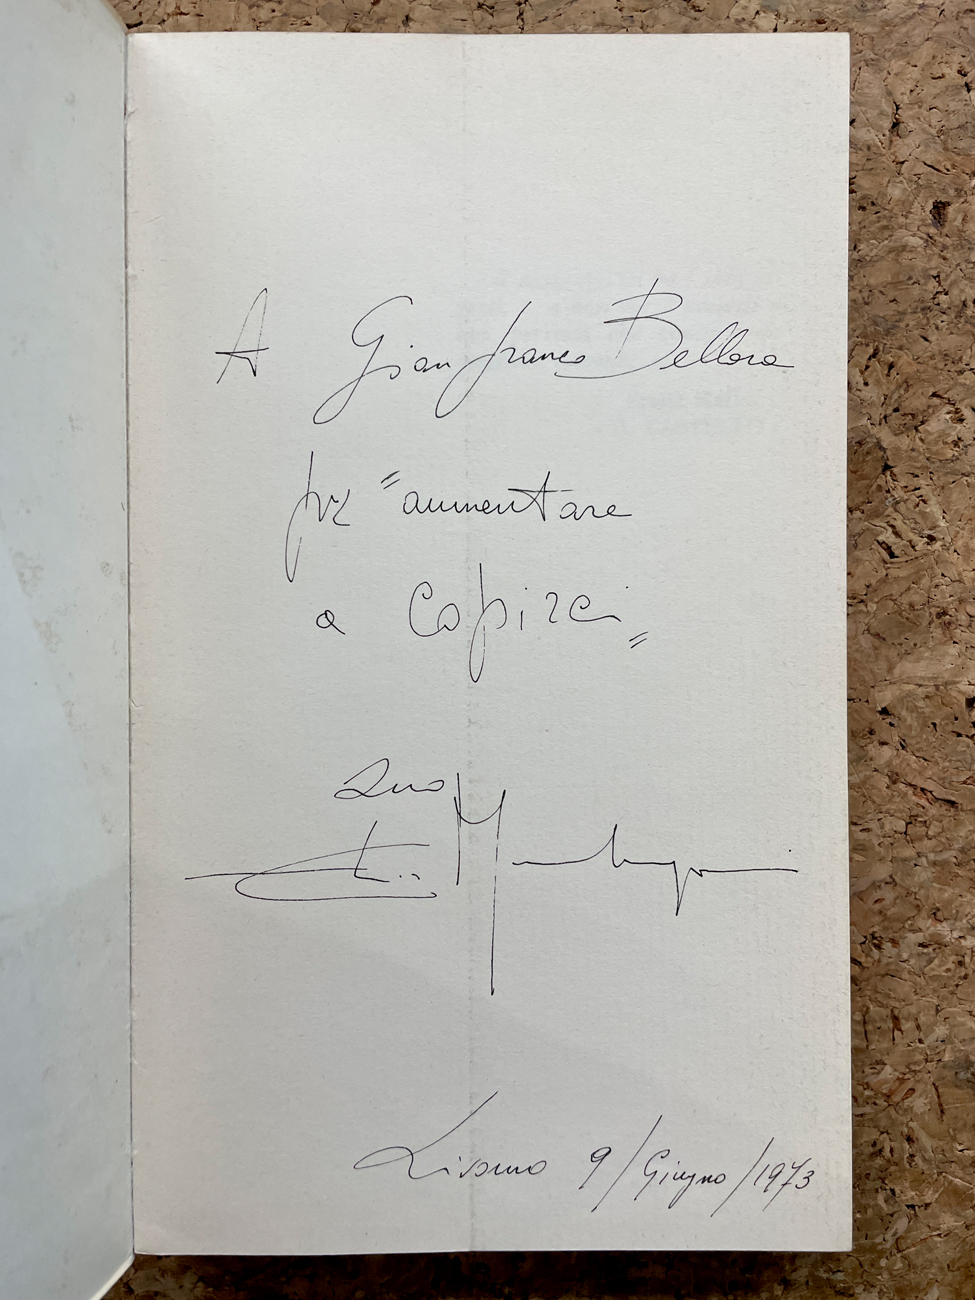 A Gianfranco Bellora
per "aumentare
a Capirci"
Suo
9/Giugno/1973